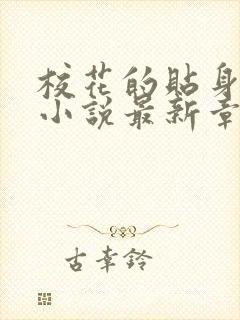 校花的貼身
小說最新章
古幸鈴